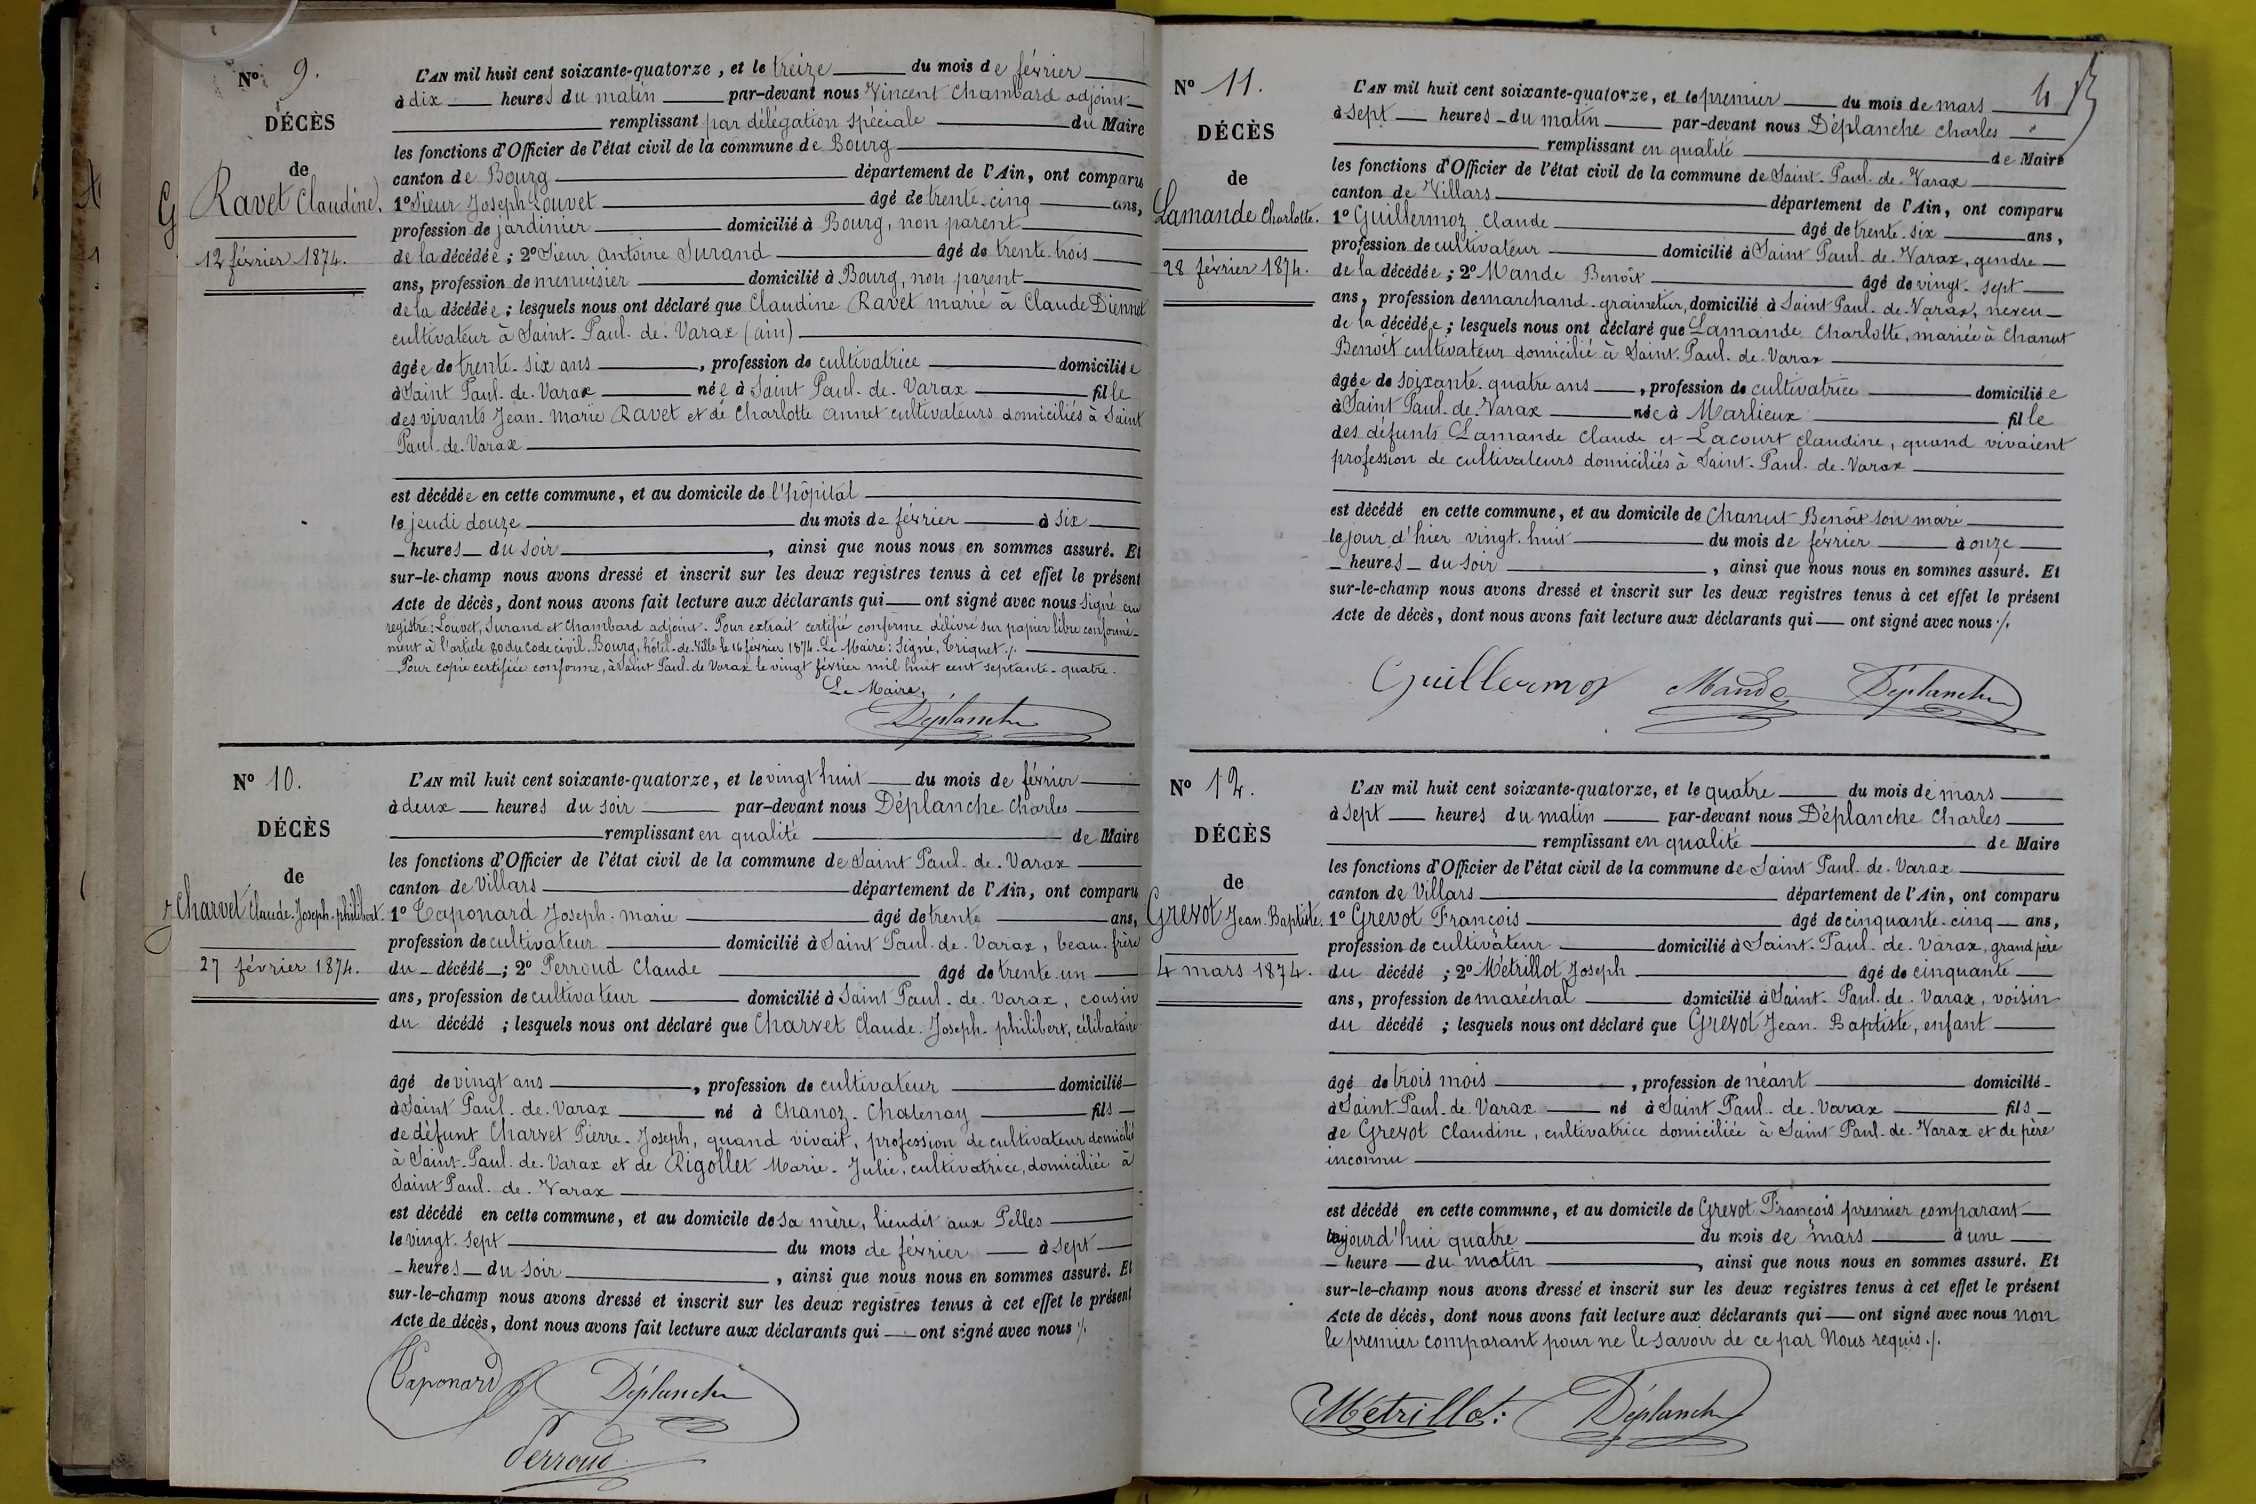 Nº 9.
DÉCÈS
de
Ravet Claudine.
12 février 1874.
L'AN mil huit cent soixante-quatorze, et le treize du mois de février
à dix heures du matin par-devant nous Vincent Chambard adjoint
remplissant par délégation spéciale du Maire
les fonctions d'Officier de l'état civil de la commune de Bourg
canton de Bourg département de l'Ain, ont comparu
1º Sieur Joseph Louvet âgé de trente-cinq ans,
profession de jardinier domicilié à Bourg, non parent
de la décédée ; 2º Sieur Antoine Surand âgé de trente-trois
ans, profession de menuisier domicilié à Bourg, non parent
de la décédée ; lesquels nous ont déclaré que Claudine Ravet marié à Claude Diennet
cultivateur à Saint-Paul-de-Varax (ain)
âgée de trente-six ans, profession de cultivatrice domiciliée
à Saint Paul-de-Varax née à Saint Paul-de-Varax fille
des vivants Jean-Marie Ravet et de Charlotte Annet cultivateurs domiciliés à Saint
Paul-de-Varax
est décédée en cette commune, et au domicile de l'hôpital
le jeudi douze du mois de février à six
heures du soir, ainsi que nous nous en sommes assuré. Et
sur-le-champ nous avons dressé et inscrit sur les deux registres tenus à cet effet le présent
Acte de décès, dont nous avons fait lecture aux déclarants qui ont signé avec nous signé au
registre: Louvet, Surand et Chambard adjoint. Pour extrait certifié conforme délivré sur papier libre conformé-
ment à l'article 80 du Code civil. Bourg, hôtel-de-Ville le 16 février 1874. Le Maire: Signé, Triquet ./.
Pour copie certifiée conforme, à Saint Paul-de-Varax le vingt février mil huit cent septante-quatre.
Le Maire,
Déplanche
Nº 10.
DÉCÈS
de
Charvet Claude-Joseph-philibert.
27 février 1874.
L'AN mil huit cent soixante-quatorze, et le vingt huit du mois de février
à deux heures du soir par-devant nous Déplanche Charles
remplissant en qualité de Maire
les fonctions d'Officier de l'état civil de la commune de Saint Paul-de-Varax
canton de Villars département de l'Ain, ont comparu
1º Taponard Joseph-marie âgé de trente ans,
profession de cultivateur domicilié à Saint Paul-de-Varax, beau-frère
du décédé ; 2º Perroud Claude âgé de trente-un
ans, profession de cultivateur domicilié à Saint Paul-de-Varax, cousin
du décédé ; lesquels nous ont déclaré que Charvet Claude-Joseph-philibert, célibataire
âgé de vingt ans, profession de cultivateur domicilié
à Saint Paul-de-Varax né à Chanoz-Chatenay fils
de défunt Charvet Pierre-Joseph, quand vivait, profession de cultivateur domicilié
à Saint-Paul-de-Varax et de Rigollet Marie-Julie, cultivatrice, domiciliée à
Saint Paul-de-Varax
est décédé en cette commune, et au domicile de sa mère, lieudit aux Pelles
le vingt-sept du mois de février à sept
heures du soir, ainsi que nous nous en sommes assuré. Et
sur-le-champ nous avons dressé et inscrit sur les deux registres tenus à cet effet le présent
Acte de décès, dont nous avons fait lecture aux déclarants qui ont signé avec nous ./.
Taponard Déplanche
Perroud
Nº 11.
DÉCÈS
de
Lamande Charlotte.
28 février 1874.
L'AN mil huit cent soixante-quatorze, et le premier du mois de mars
à sept heures du matin par-devant nous Déplanche Charles
remplissant en qualité de Maire
les fonctions d'Officier de l'état civil de la commune de Saint-Paul-de-Varax
canton de Villars département de l'Ain, ont comparu
1º Guillermoz Claude âgé de trente-six ans,
profession de cultivateur domicilié à Saint Paul-de-Varax, gendre
de la décédée ; 2º Mande Benoît âgé de vingt-sept
ans, profession de marchand-grainetier, domicilié à Saint Paul-de-Varax, neveu
de la décédée ; lesquels nous ont déclaré que Lamande Charlotte, mariée à Chanut
Benoît cultivateur domicilié à Saint-Paul-de-Varax
âgée de soixante-quatre ans, profession de cultivatrice domiciliée
à Saint Paul-de-Varax née à Marlieux fille
des défunts Lamande Claude et Lacourt Claudine, quand vivaient
profession de cultivateurs domiciliés à Saint-Paul-de-Varax
est décédé en cette commune, et au domicile de Chanut Benoît son mari
le jour d'hier vingt-huit du mois de février à onze
heures du soir, ainsi que nous nous en sommes assuré. Et
sur-le-champ nous avons dressé et inscrit sur les deux registres tenus à cet effet le présent
Acte de décès, dont nous avons fait lecture aux déclarants qui ont signé avec nous ./.
Guillermoz Mande Déplanche
Nº 12.
DÉCÈS
de
Grevot Jean-Baptiste.
4 mars 1874.
L'AN mil huit cent soixante-quatorze, et le quatre du mois de mars
à sept heures du matin par-devant nous Déplanche Charles
remplissant en qualité de Maire
les fonctions d'Officier de l'état civil de la commune de Saint Paul-de-Varax
canton de Villars département de l'Ain, ont comparu
1º Grevot François âgé de cinquante-cinq ans,
profession de cultivateur domicilié à Saint-Paul-de-Varax, grand père
du décédé ; 2º Métrillot Joseph âgé de cinquante
ans, profession de maréchal domicilié à Saint-Paul-de-Varax, voisin
du décédé ; lesquels nous ont déclaré que Grevot Jean-Baptiste, enfant
âgé de trois mois, profession de néant domicilié
à Saint-Paul-de-Varax né à Saint Paul-de-Varax fils
de Grevot Claudine, cultivatrice domiciliée à Saint Paul-de-Varax et de père
inconnu
est décédé en cette commune, et au domicile de Grevot François premier comparant
aujourd'hui quatre du mois de mars à une
heure du matin, ainsi que nous nous en sommes assuré. Et
sur-le-champ nous avons dressé et inscrit sur les deux registres tenus à cet effet le présent
Acte de décès, dont nous avons fait lecture aux déclarants qui ont signé avec nous non
le premier comparant pour ne le savoir de ce par Nous requis ./.
Métrillot Déplanche